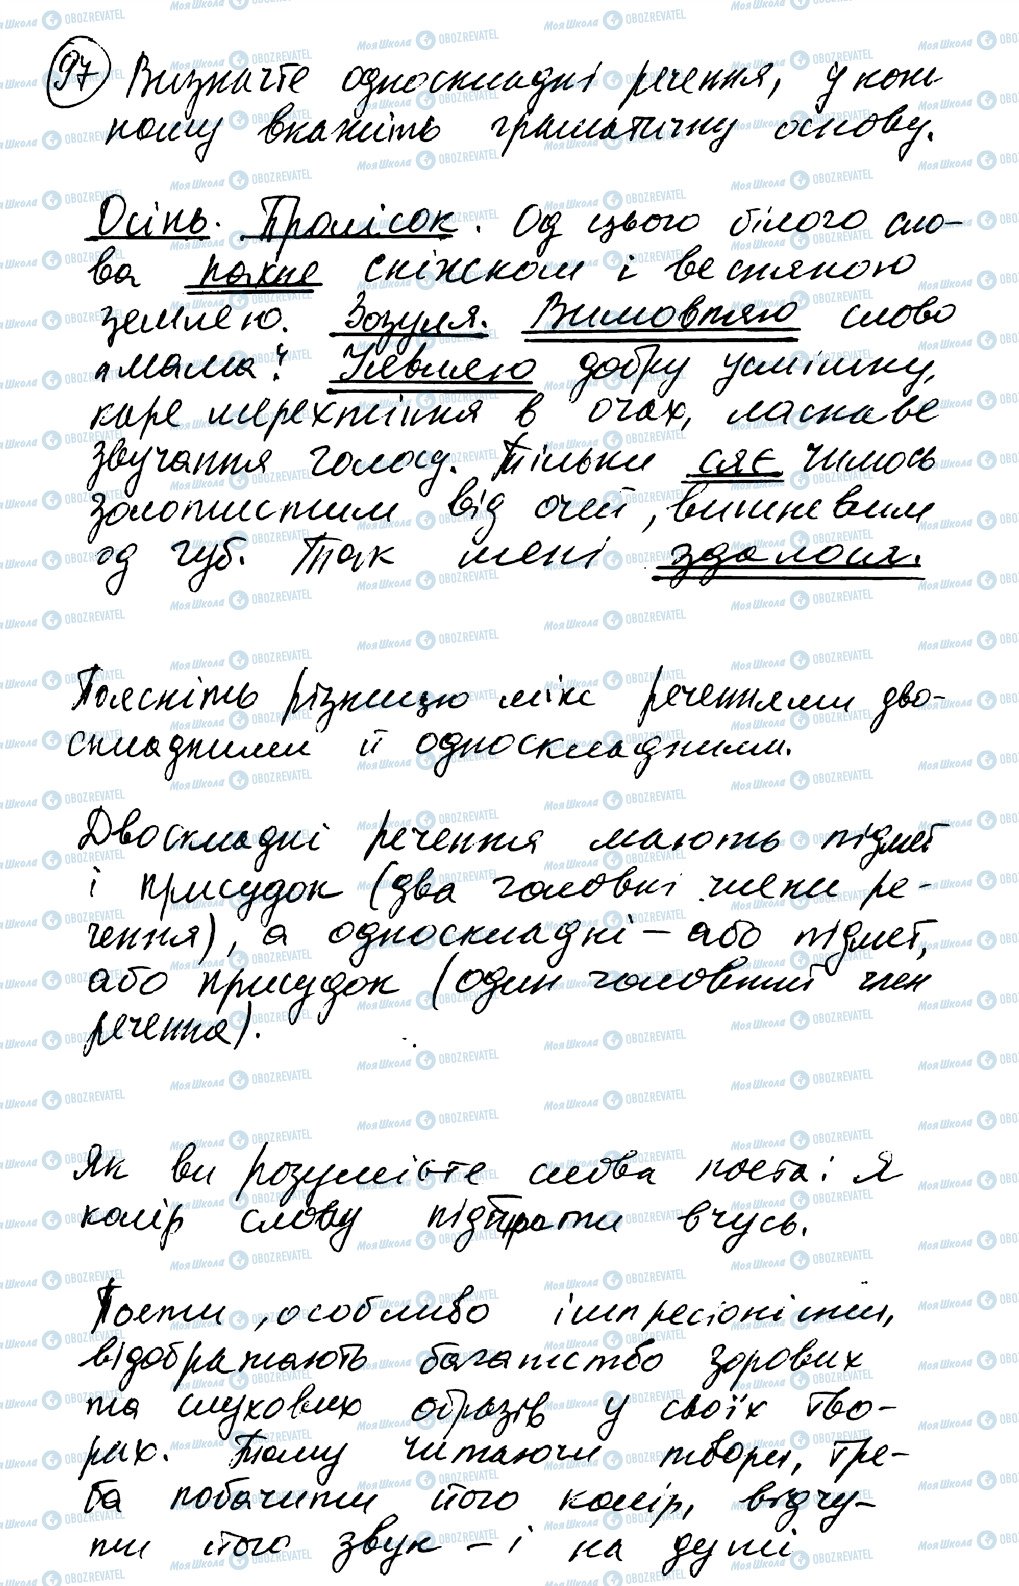 97 Визначте односкладні речення, у кож
ному вкажіть граматичну основу.
Осінь. Пролісок. Од цього білого сло-
ва пахне сніжком і весняною
землею. Зозуля. Вимовляю слово
"мама". Уявляю добру усмішку,
каре мерехтіння в очах, ласкаве
звучання голосу. Тільки сяє чимось
золотистим від очей, вишневим
од губ. Так мені здалось.
Поясніть різницю між реченнями дво-
складними й односкладними.
Двоскладні речення мають підмет
і присудок (два головні члени ре-
чення), а односкладні – або підмет,
або присудок (один головний член
речення).
Як ви розумієте слова поета: Я
колір слову підбирати вчусь.
Поети, особливо імпресіоністи,
відображають багатство зорових
та слухових образів у своїх тво-
рах. Тому читаючи твори, тре-
ба побачити його колір, відчу-
ти його звук – і на душі